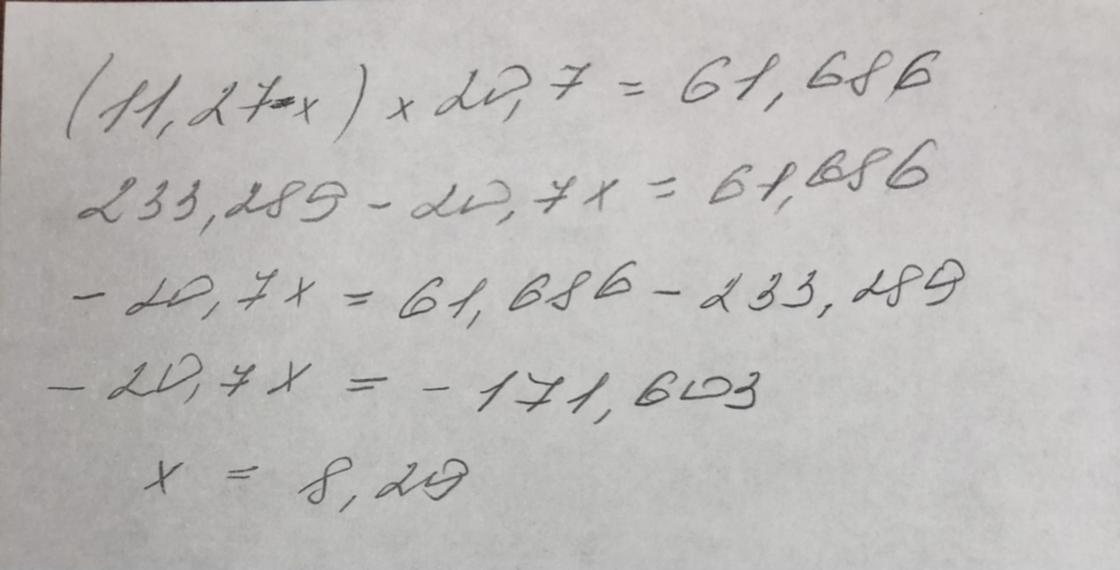 (11,27-x) x 20,7 = 61,686
233,289 - 20,7x = 61,686
- 20,7x = 61,686 - 233,289
- 20,7x = - 171,603
x = 8,29